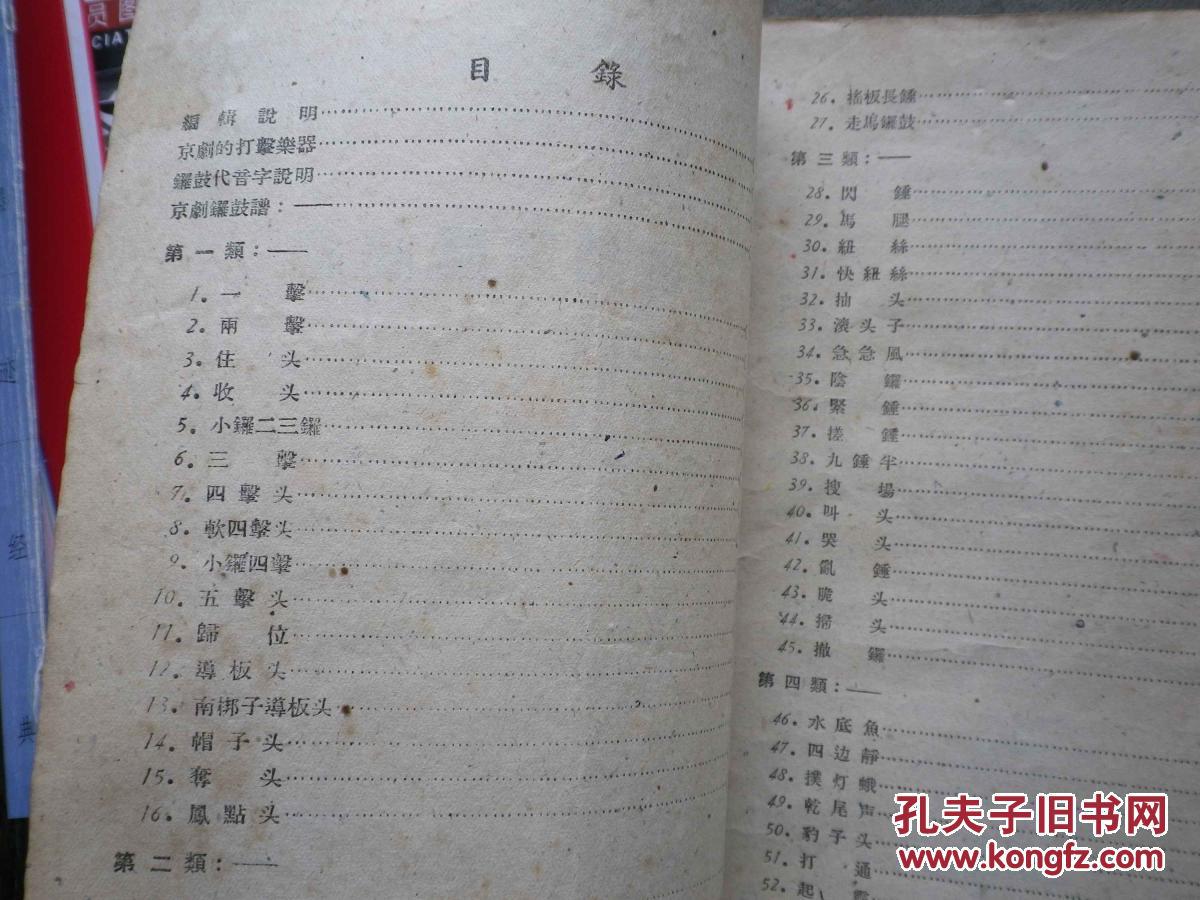 目錄
編輯說明
京劇的打擊樂器
鑼鼓代音字說明
京劇鑼鼓譜：——
第一類：——
1. 一擊
2. 兩擊
3. 住头
4. 收头
5. 小鑼二三鑼
6. 三擊
7. 四擊头
8. 軟四擊头
9. 小鑼四擊
10. 五擊头
11. 歸位
12. 導板头
13. 南梆子導板头
14. 帽子头
15. 奪头
16. 鳳點头
第二類：——
26. 搖板長錘
27. 走馬鑼鼓
第三類：——
28. 閃錘
29. 馬腿
30. 紐絲
31. 快紐絲
32. 抽头
33. 滾头子
34. 急急風
35. 陰鑼
36. 緊錘
37. 搓錘
38. 九錘半
39. 搜場
40. 叫头
41. 哭头
42. 亂錘
43. 脆头
44. 掃头
45. 撤鑼
第四類：——
46. 水底魚
47. 四边靜
48. 撲灯蛾
49. 乾尾声
50. 豹子头
51. 打通
52. 起
员图
CIAT
迹
经
典
孔夫子旧书网
www.kongfz.com